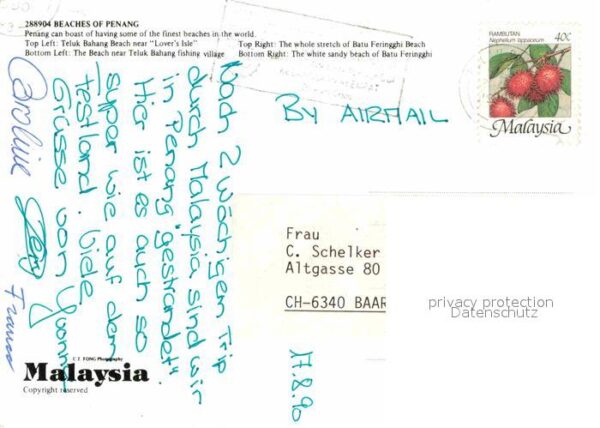 288904 BEACHES OF PENANG
Penang can boast of having some of the finest beaches in the world.
Top Left: Teluk Bahang Beach near "Lover's Isle"
Top Right: The whole stretch of Batu Feringghi Beach
Bottom Left: The Beach near Teluk Bahang fishing village
Bottom Right: The white sandy beach of Batu Feringghi
RAMBUTAN
Nephelium lappaceum
40c
Malaysia
BY AIRMAIL
Nach 2 wöchigem Trip
durch Malaysia sind wir
in Penang "gestrandet".
Hier ist es auch so
super wie auf dem
Festland. Viele
Grüsse von Yvonne
Caroline
Franco
Frau
C. Schelker
Altgasse 80
CH-6340 BAAR
privacy protection
Datenschutz
17.8.90
C.T. FONG Photography
Malaysia
Copyright reserved